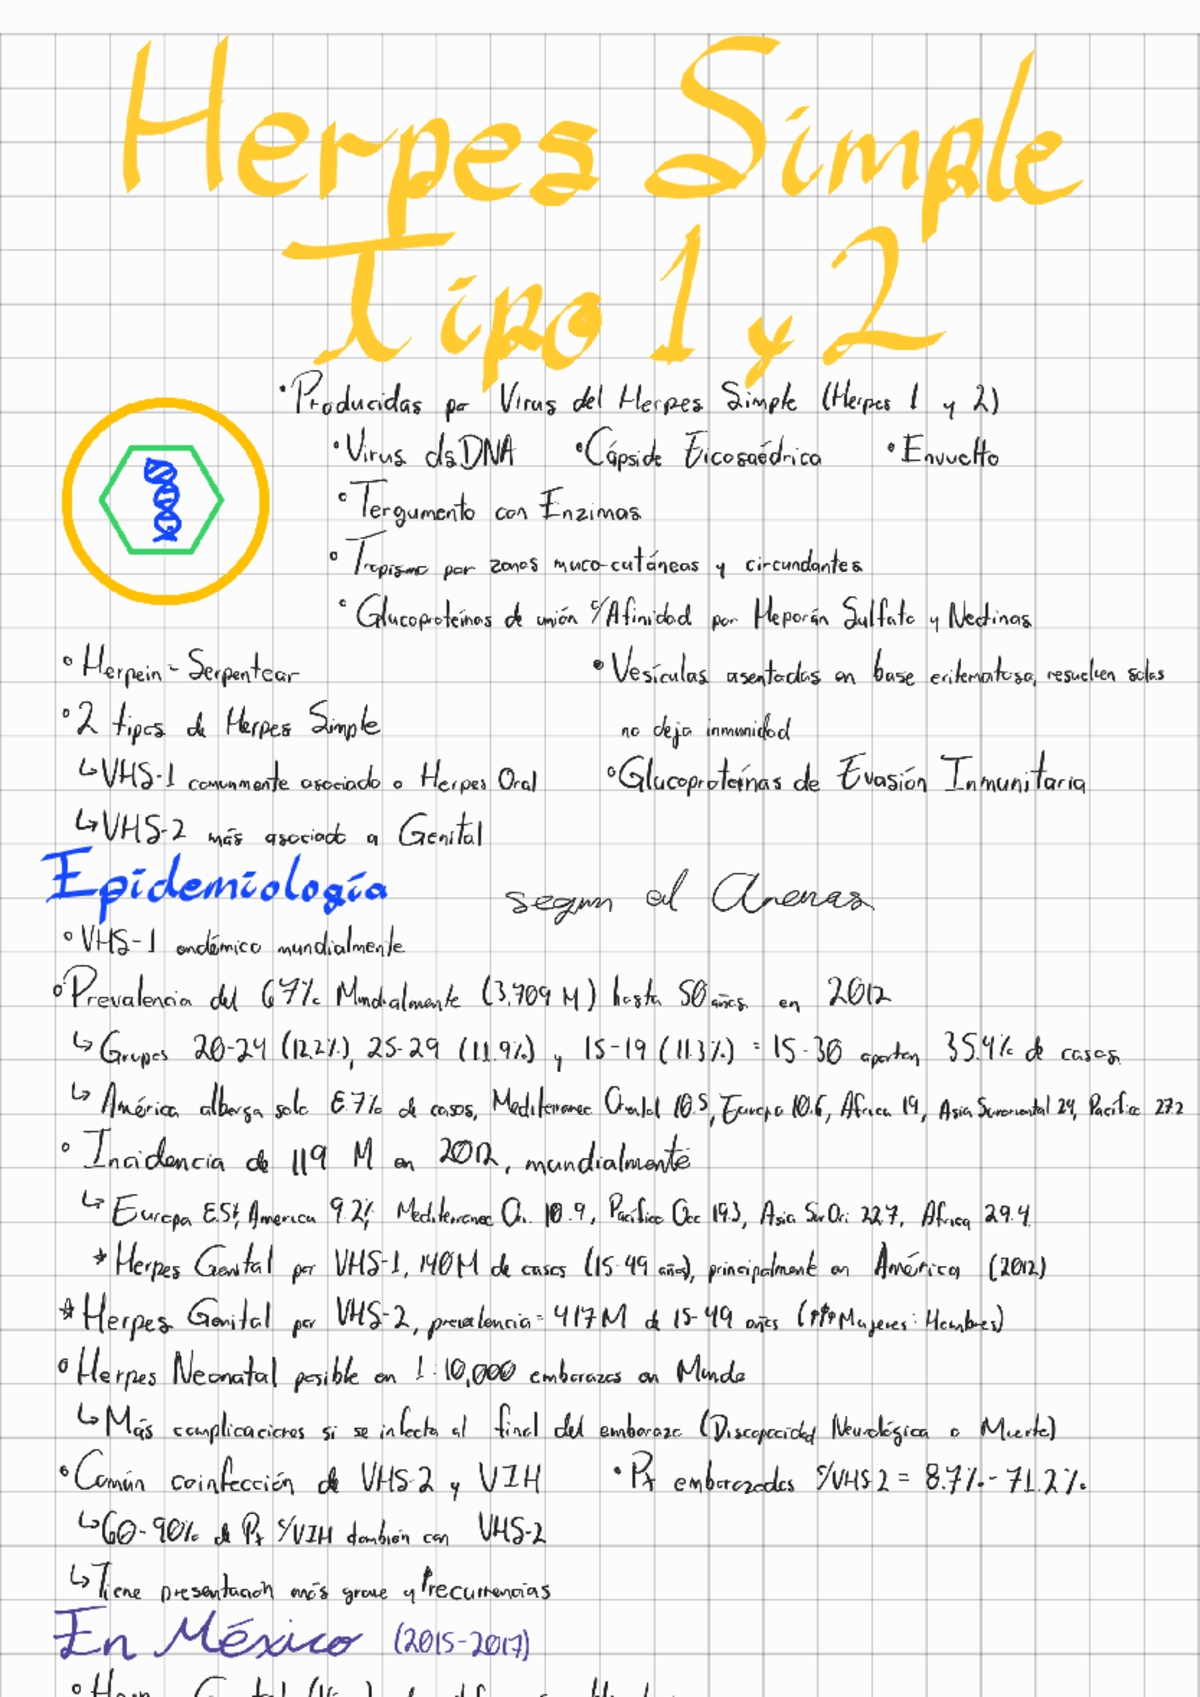 Herpes Simple
Tipo 1 y 2
• Producidas por Virus del Herpes Simple (Herpes 1 y 2)
• Virus dsDNA • Cápside Eicosaédrica • Envuelto
° Tergumento con Enzimas
° Tropismo por zonas muco-cutáneas y circundantes
° Glucoproteínas de unión c/Afinidad por Heparán Sulfato y Nectinas
° Herpein - Serpentear
• Vesículas asentadas en base eritematosa, resuelven solas
no deja inmunidad
° 2 tipos de Herpes Simple
↳ VHS-1 comunmente asociado a Herpes Oral
° Glucoproteínas de Evasión Inmunitaria
↳ VHS-2 más asociado a Genital
Epidemiología segun el Arenas
° VHS-1 endémico mundialmente
° Prevalencia del 67% Mundialmente (3,709 M) hasta 50 años en 2012
↳ Grupos 20-24 (12.2%), 25-29 (11.9%) y 15-19 (11.3%) = 15-30 aportan 35.4% de casos
↳ América alberga solo 8.7% de casos, Mediterraneo Oriental 10.5, Europa 10.6, Africa 19, Asia Suroriental 24, Pacífico 27.2
° Incidencia de 119 M en 2012, mundialmente
↳ Europa 8.5%, America 9.2%, Mediterraneo Or. 10.9, Pacífico Occ 19.3, Asia SurOri 22.7, Africa 29.4
* Herpes Genital por VHS-1, 140M de casos (15-49 años), principalmente en América (2012)
* Herpes Genital por VHS-2, prevalencia = 417M de 15-49 años (↑↑↑Mujeres : Hombres)
° Herpes Neonatal posible en 1:10,000 embarazos en Mundo
↳ Más complicaciones si se infecta al final del embarazo (Discapacidad Neurológica o Muerte)
• Común coinfección de VHS-2 y VIH • Px embarazadas c/VHS2 = 8.7%-71.2%
↳ 60-90% de Px c/VIH también con VHS-2
↳ Tiene presentación más grave y ↑recurrencias
En México (2015-2017)